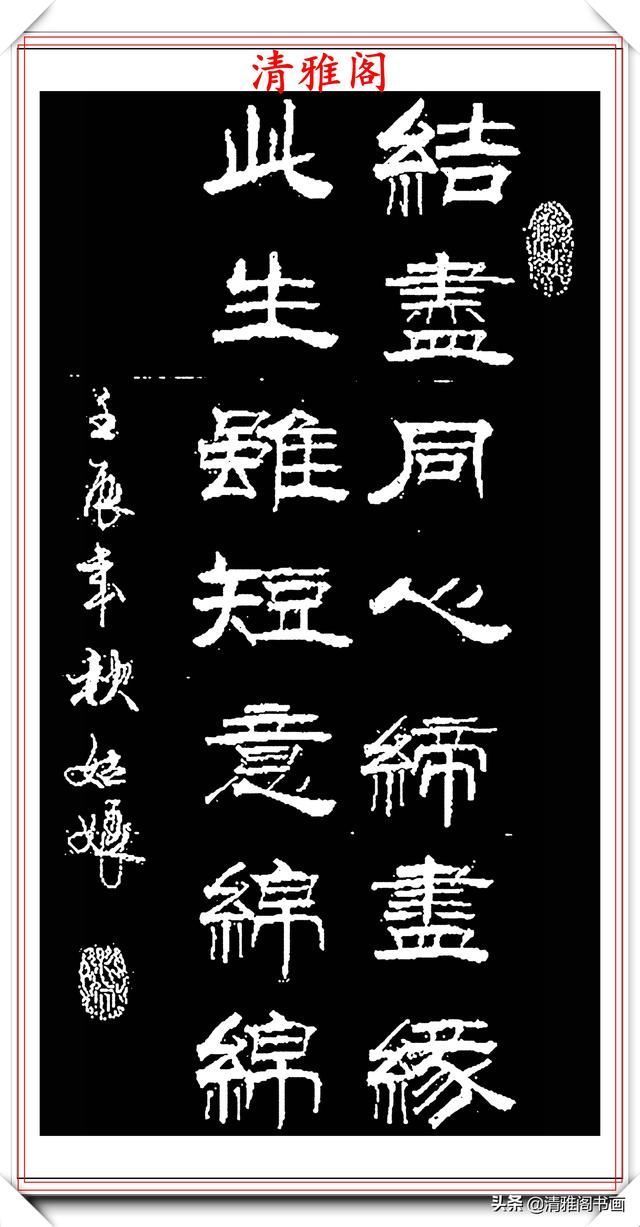 清雅阁
結盡同心締盡緣
此生雖短意綿綿
壬辰年秋姑孃
头条 @清雅阁书画